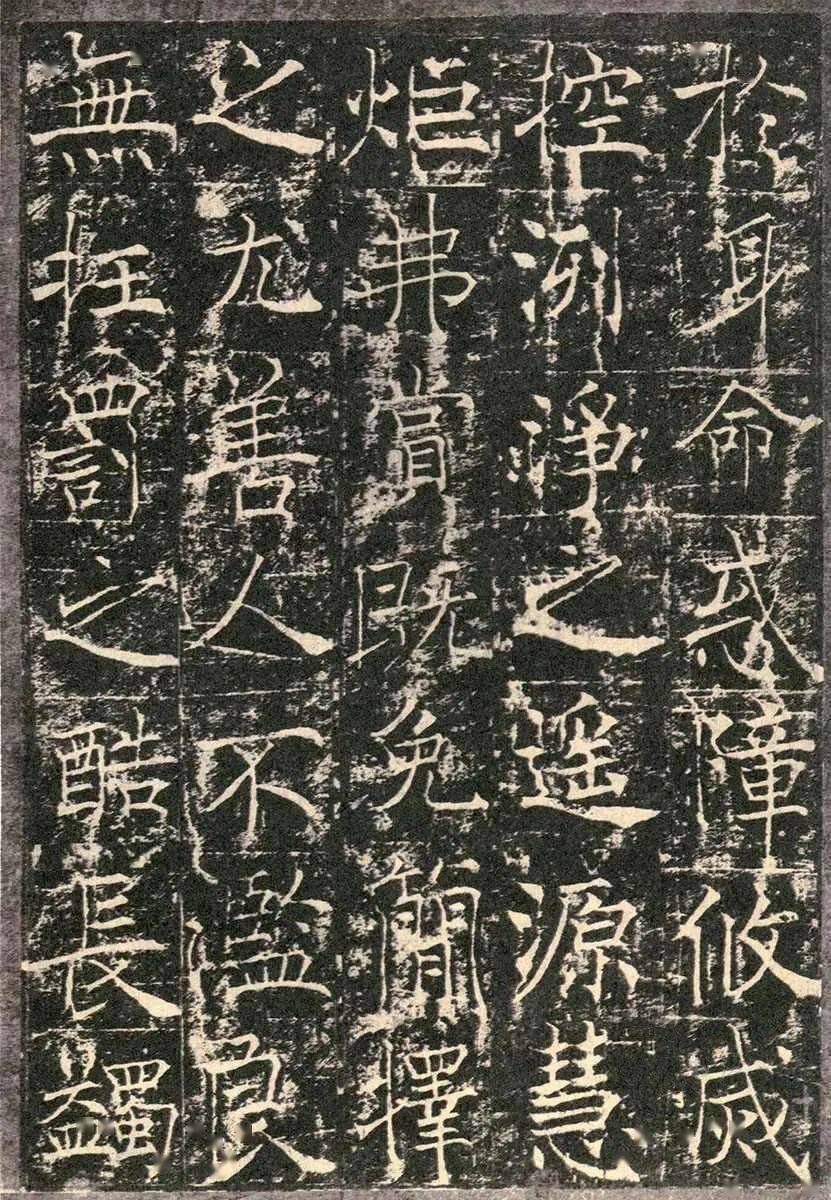 扵身命惑障攸烕
控洌淨之遥源慧
炬弗賞既免簡擇
之尤善人不濫良
無抂罰之酷長蠲